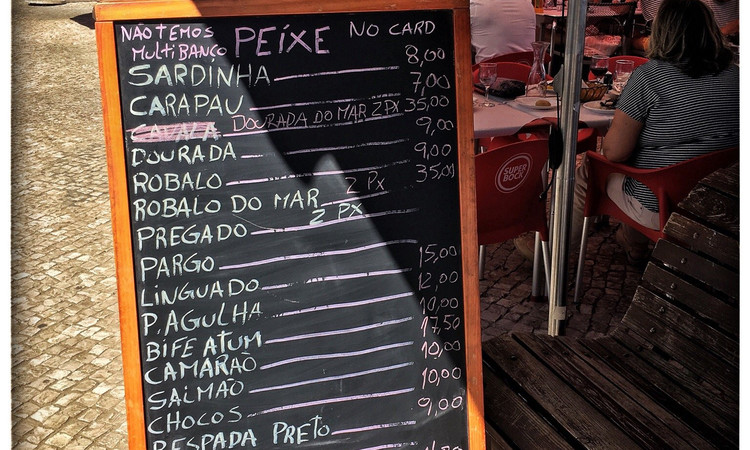 NÃO TEMOS MULTIBANCO PEIXE NO CARD
SARDINHA 8,00
CARAPAU 7,00
CAVALA DOURADA DO MAR 2 PX 35,00
DOURADA 9,00
ROBALO 9,00
ROBALO DO MAR 2 PX 35,00
PREGADO 2 PX
PARGO
LINGUADO 15,00
P. AGULHA 12,00
BIFE ATUM 10,00
CAMARÃO 17,50
SALMÃO 10,00
CHOCOS 10,00
PRETO 9,00
SUPER
BOCK